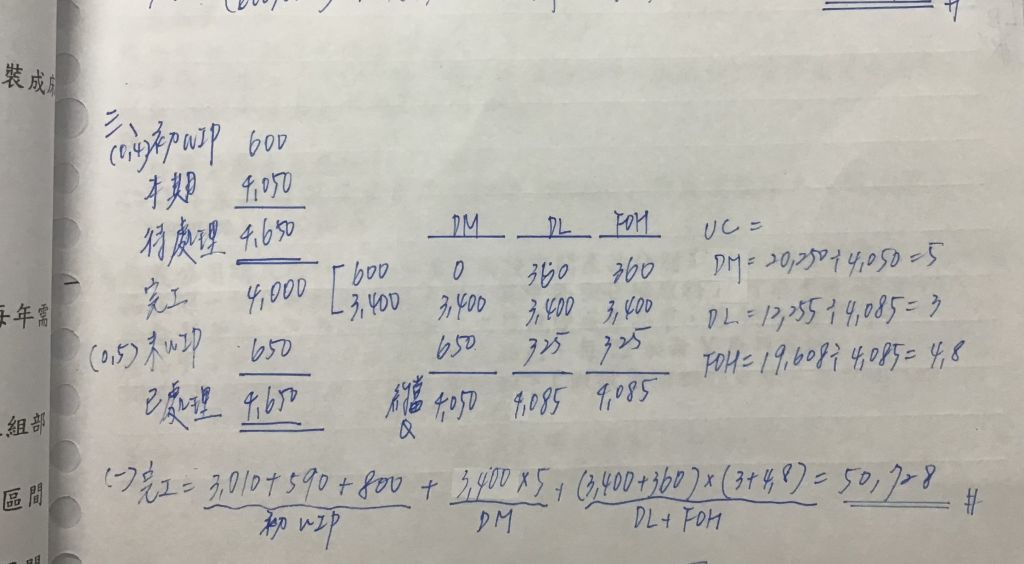 裝成
三、
(0,4)初WIP 600
本期 4,050
待處理 4,650
完工 4,000 [600
3,400
(0,5)末WIP 650
已處理 4,650
DM DL FOH
0 360 360
3,400 3,400 3,400
650 325 325
約當Q 4,050 4,085 4,085
UC =
DM = 20,250 ÷ 4,050 = 5
DL = 12,255 ÷ 4,085 = 3
FOH = 19,608 ÷ 4,085 = 4,8
(一)完工 = 3,010 + 590 + 800 + 3,400 × 5 + (3,400 + 360) × (3 + 4,8) = 50,728 #
初WIP DM DL + FOH
每年需
組部
區間